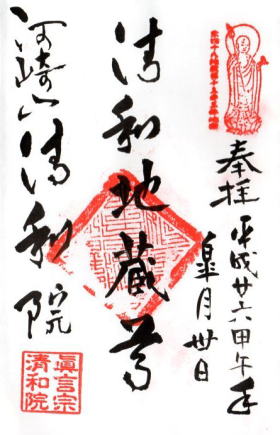 奉拝
平成廿六甲午年
皐月卅日
清和地蔵尊
河崎山清和院
眞言宗
清和院